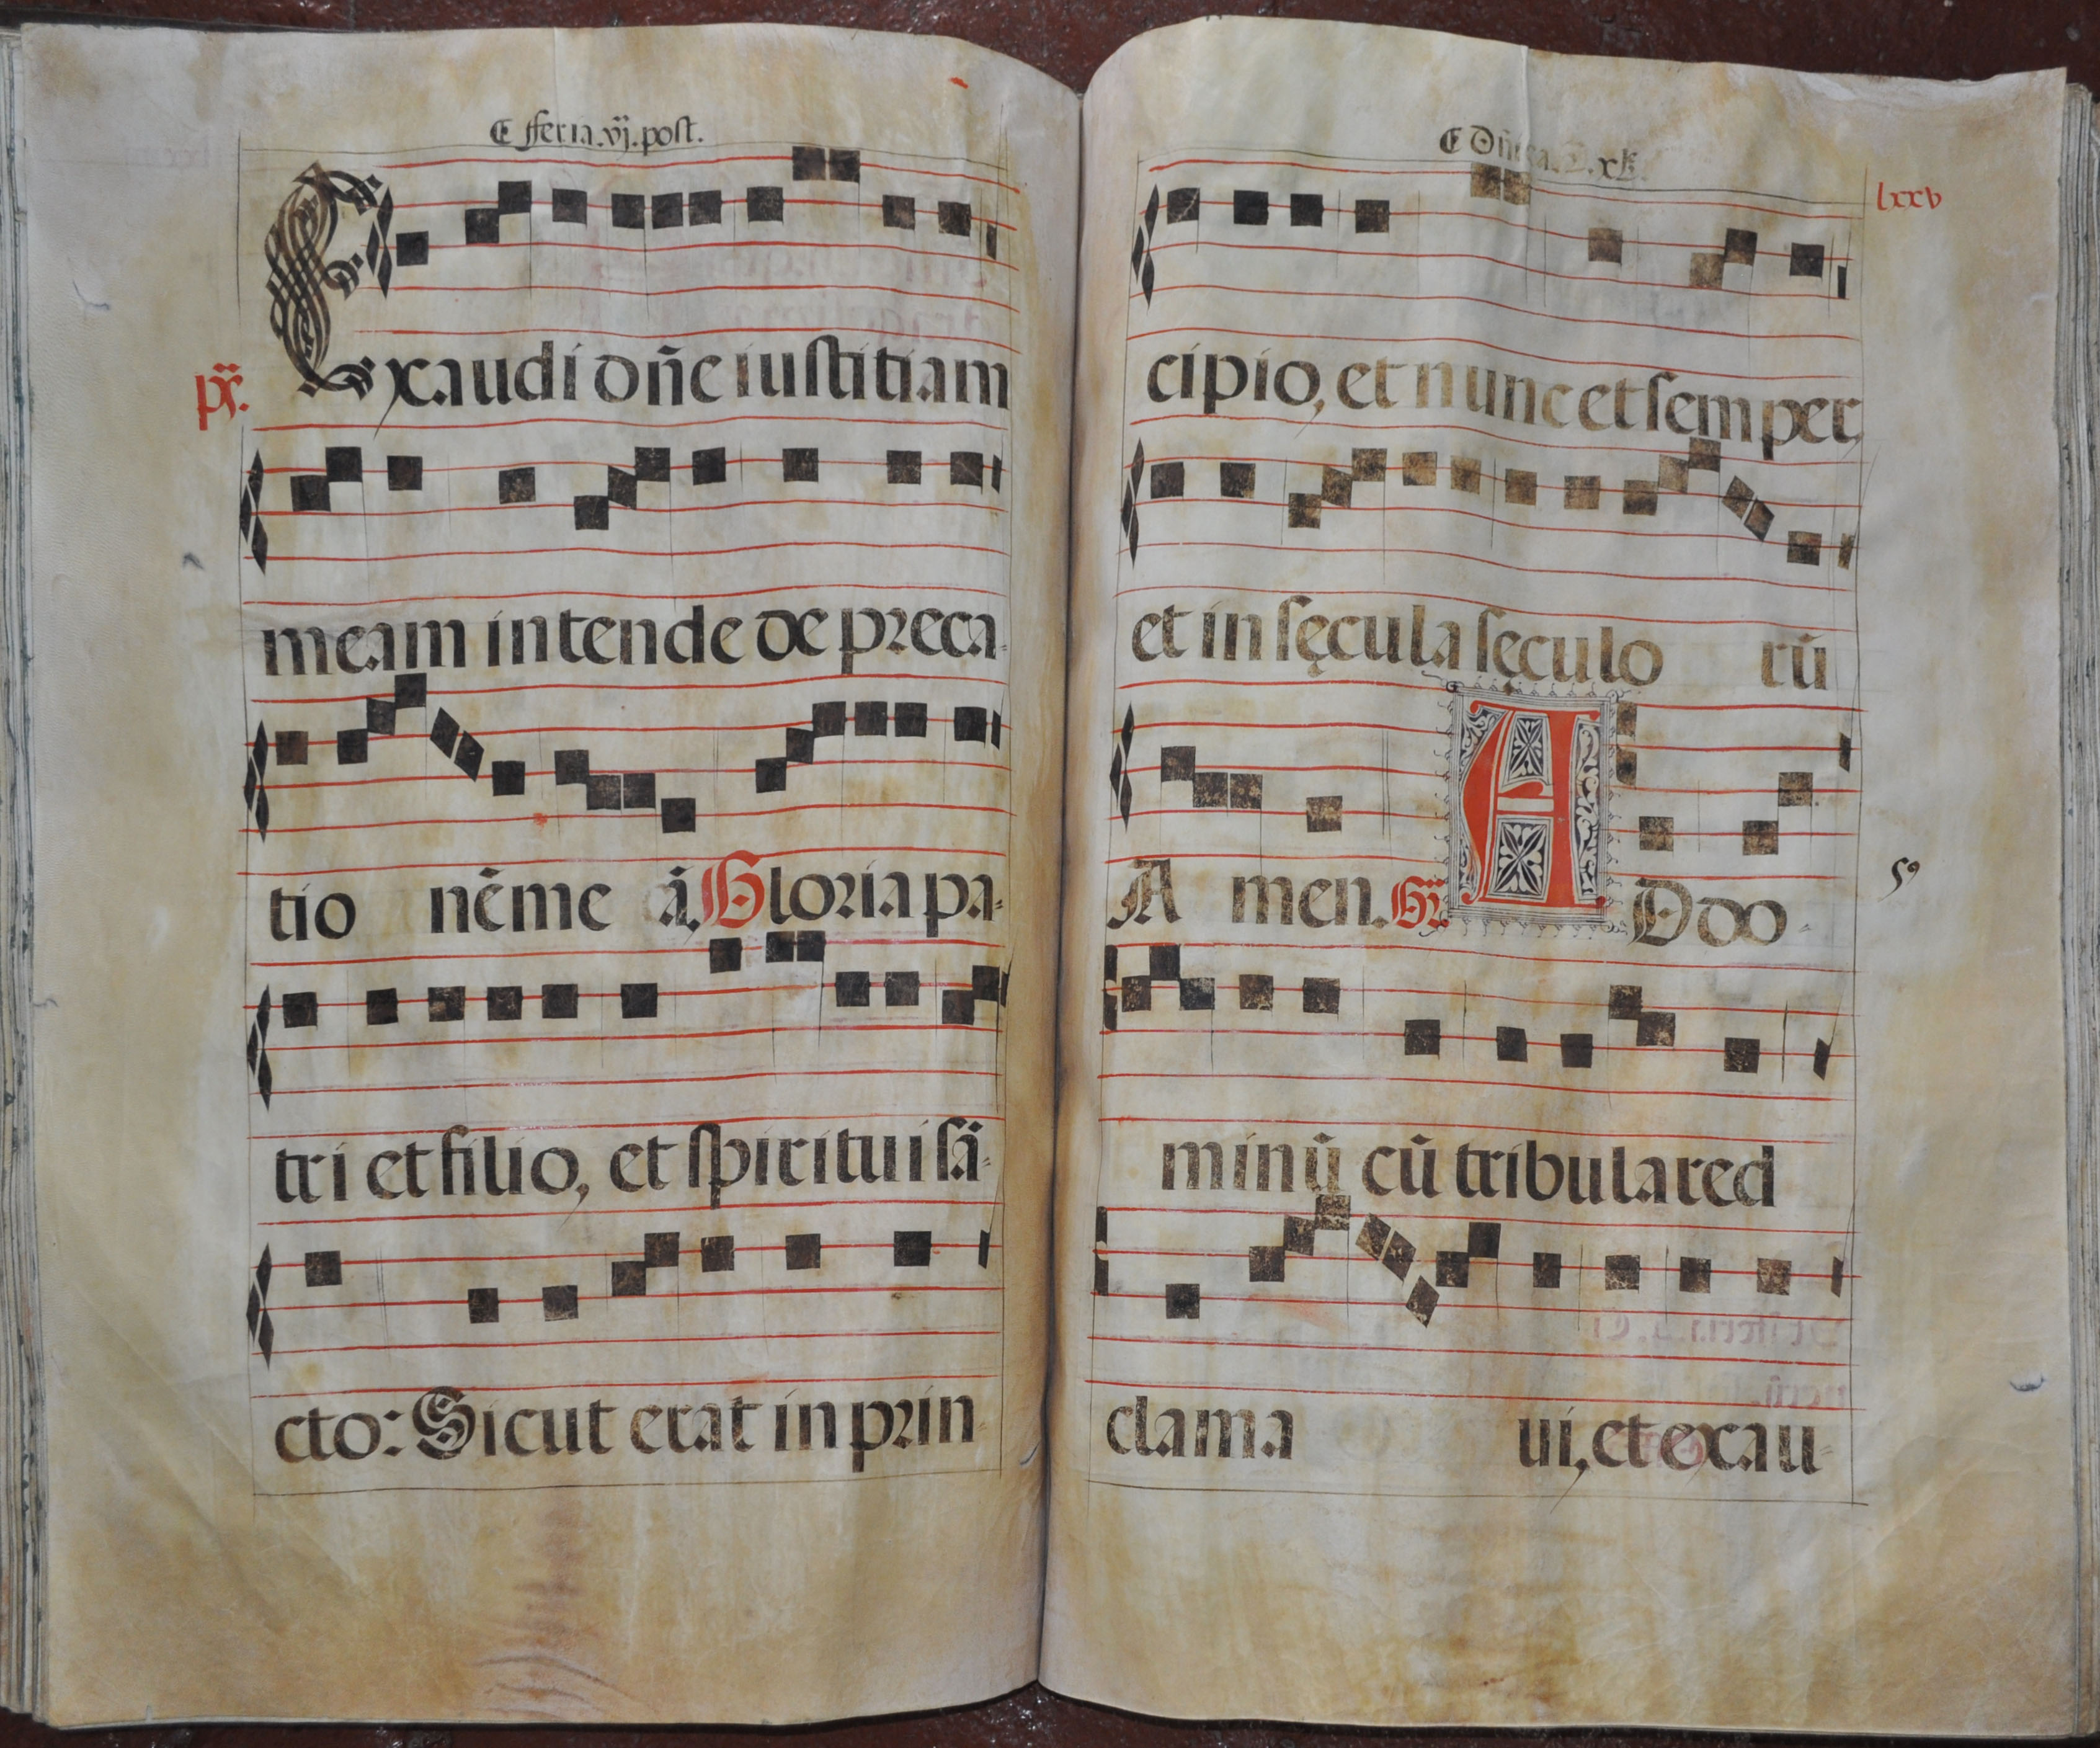 ¶ fferia.vj.post.
Exaudi dñe iustitiam
pˢ.
meam intende depreca-
tio nẽ me ã. Gloria pa-
tri et filio, et spiritui sã-
cto: Sicut erat in prin-
lxxv
cipio, et nunc et semper,
et in sęcula sęculo rũ
A men. Gr. AD do-
59
minũ cũ tribulared
clama ui, et exau-